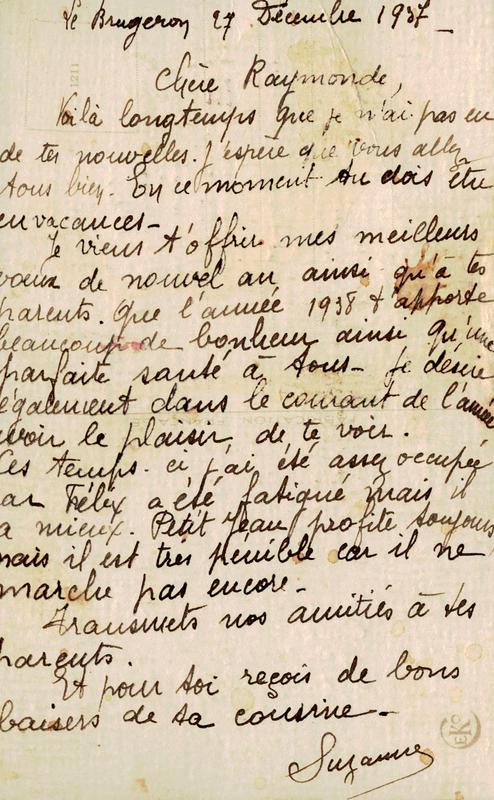 Le Brugeron 27 Décembre 1937_
Chère Raymonde,
Voilà longtemps que je n'ai pas eu
de tes nouvelles. J'espère que vous allez
tous bien. En ce moment tu dois être
en vacances_
Je viens t'offrir mes meilleurs
vœux de nouvel an ainsi qu'à tes
parents. Que l'année 1938 t'apporte
beaucoup de bonheur ainsi qu'une
parfaite santé à tous_ Je désire
également dans le courant de l'année
avoir le plaisir de te voir.
Ces temps-ci j'ai été assez occupée
car Félix a été fatigué mais il
a mieux. Petit Jean profite toujours
mais il est très pénible car il ne
marche pas encore_
Transmets nos amitiés à tes
parents.
Et pour toi reçois de bons
baisers de ta cousine_
Suzanne
EKO
1211